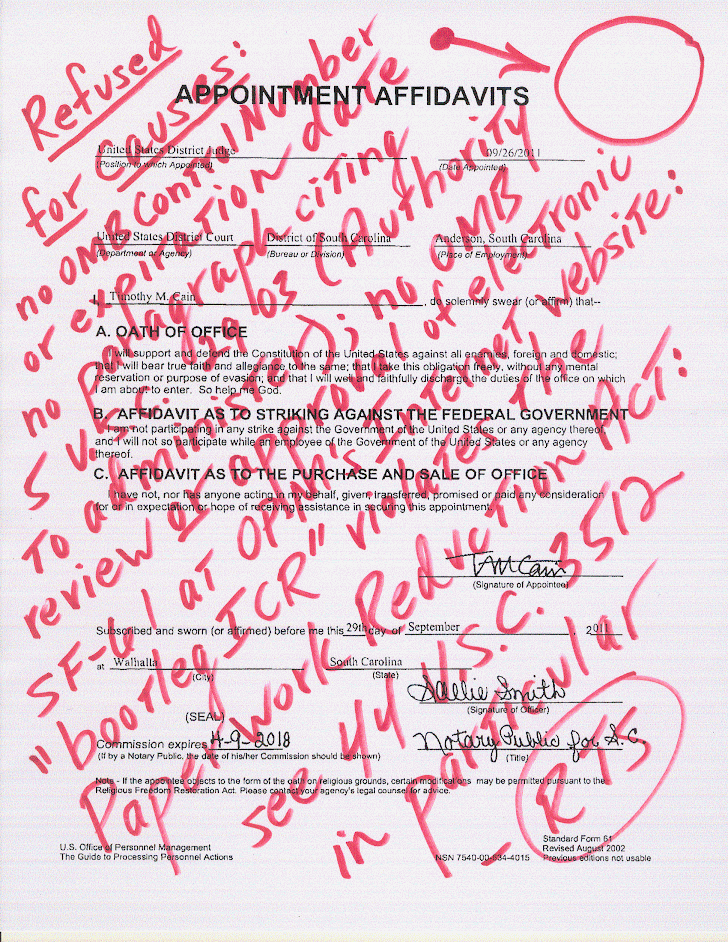 APPOINTMENT AFFIDAVITS
United States District Judge 09/26/2011
(Position to which Appointed) (Date Appointed)
United States District Court District of South Carolina Anderson, South Carolina
(Department or Agency) (Bureau or Division) (Place of Employment)
I, Timothy M. Cain , do solemnly swear (or affirm) that--
A. OATH OF OFFICE
I will support and defend the Constitution of the United States against all enemies, foreign and domestic;
that I will bear true faith and allegiance to the same; that I take this obligation freely, without any mental
reservation or purpose of evasion; and that I will well and faithfully discharge the duties of the office on which
I am about to enter. So help me God.
B. AFFIDAVIT AS TO STRIKING AGAINST THE FEDERAL GOVERNMENT
I am not participating in any strike against the Government of the United States or any agency thereof,
and I will not so participate while an employee of the Government of the United States or any agency
thereof.
C. AFFIDAVIT AS TO THE PURCHASE AND SALE OF OFFICE
I have not, nor has anyone acting in my behalf, given, transferred, promised or paid any consideration
for or in expectation or hope of receiving assistance in securing this appointment.
TMCain
(Signature of Appointee)
Subscribed and sworn (or affirmed) before me this 29th day of September , 2011
at Walhalla South Carolina
(City) (State)
Sallie Smith
(Signature of Officer)
(SEAL)
Commission expires 4-9-2018 Notary Public for S.C
(If by a Notary Public, the date of his/her Commission should be shown) (Title)
Note - If the appointee objects to the form of the oath on religious grounds, certain modifications may be permitted pursuant to the
Religious Freedom Restoration Act. Please contact your agency's legal counsel for advice.
U.S. Office of Personnel Management
The Guide to Processing Personnel Actions
NSN 7540-00-634-4015
Standard Form 61
Revised August 2002
Previous editions not usable
Refused
for causes:
no OMB Control Number
or expiration date
no paragraph citing
5 U.S.C. 2903 (Authority
To administer); no OMB
review or approval of electronic
SF-61 at OPM's Internet website:
"bootleg ICR" violates the
Paperwork Reduction Act:
see 44 U.S.C. 3512
in particular